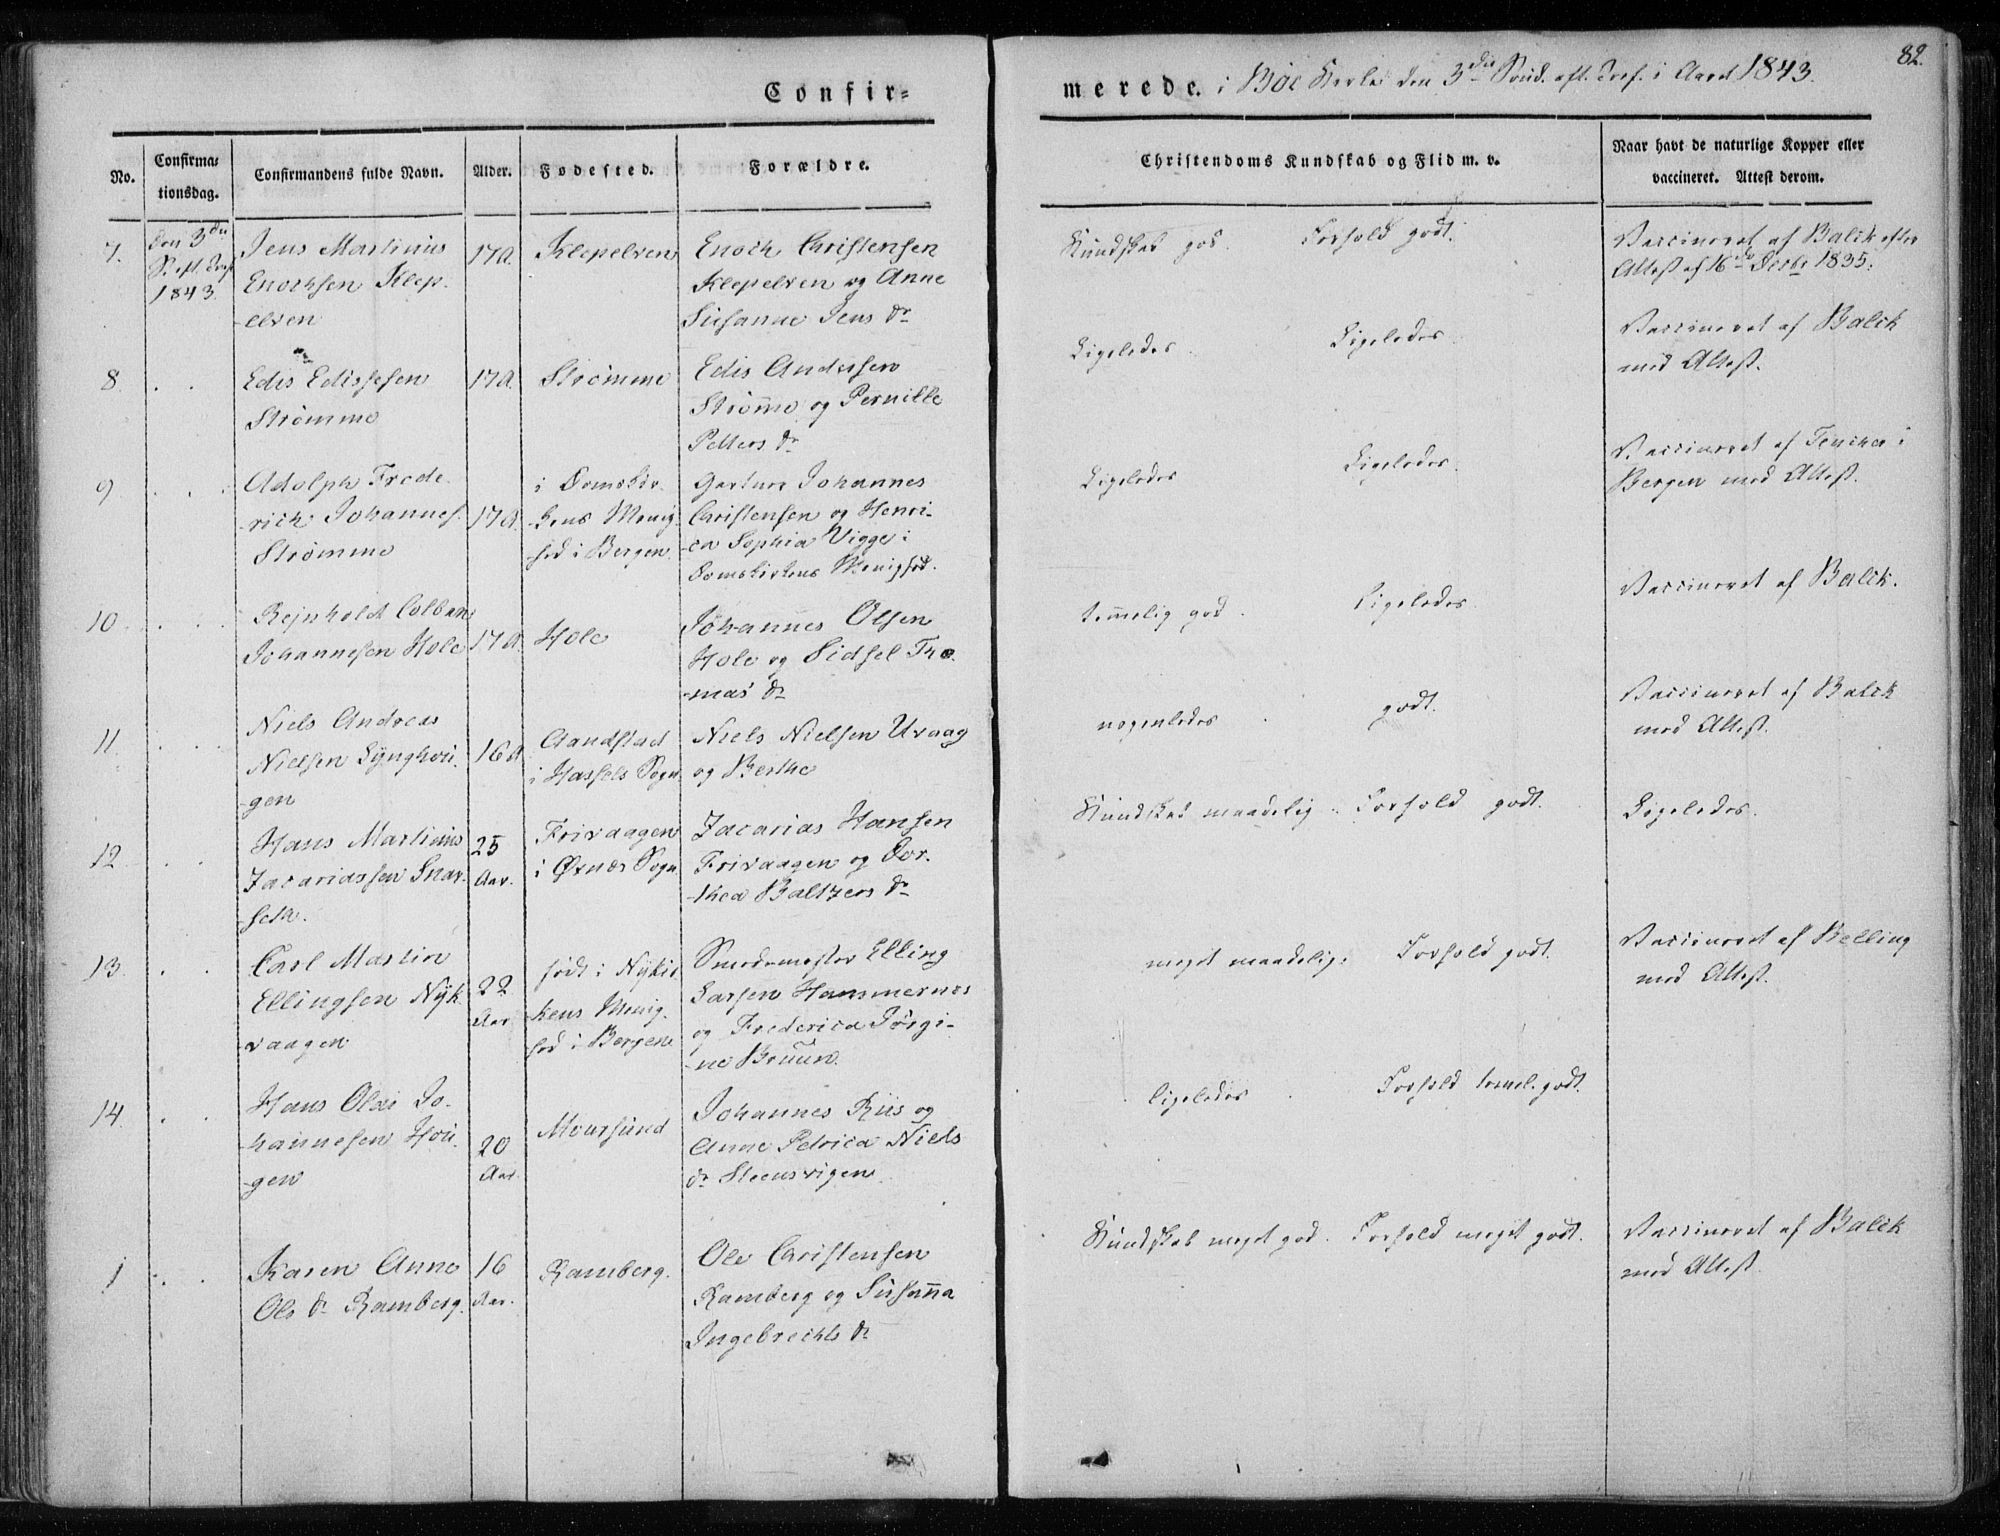 82.
Confir=
merede. i Bøe Kirke den 3die Sønd. eft. Tref. i Aaret 1843.
No.
Confirma=
tionsdag.
Confirmandens fulde Navn.
Alder.
Fødested.
Forældre.
Christendoms Kundskab og Flid m. v.
Naar havt de naturlige Kopper eller
vaccineret. Attest derom.
7.
den 3die
S. eft. Tref.
1843.
Jens Martinus
Enochsen Klep-
-elven
17 A.
Klepelven
Enoch Christensen
Klepelven og Anne
Susanne Jens Dr
Kundskab god.
Forhold godt.
Vaccineret af Balck efter
Attest af 16de Decbr 1835.
8
Edis Edissesen
Strømme
17 A.
Strømme
Edis Andersen
Strømme og Pernille
Petters Dr
Ligeledes
Ligeledes
Vaccineret af Balck
med Attest.
9
Adolph Frede-
-rich Johannes.
Strømme
17 A.
i Domskir-
kens Menig-
hed i Bergen.
Gartner Johannes
Christensen og Henri-
-ca Sophia Vigge i
Domskirkens Menighed.
Ligeledes
Ligeledes
Vaccineret af i
Bergen med Attest.
10
Rejnholdt Colban
Johannesen Hole
17 A.
Hole
Johannes Olsen
Hole og Sidsel Tho-
-mas Dr
temmelig god
Ligeledes
Vaccineret af Balck.
11.
Niels Andreas
Nielsen Lynghou-
-gen
16 A
Aandstad
i Hassels Sogn
Niels Nielsen Uvaag
og Berthe
nogenledes
godt.
Vaccineret af Balck
med Attest.
12
Hans Martinus
Zacariassen Snar-
seth.
25
Aar.
Frivaagen
i Øxnæs Sogn
Zacarias Hansen
Frivaagen og Dor-
-thea Baltzers Dr
Kundskab maadelig
Forhold godt.
Ligeledes.
13
Carl Martin
Ellingsen Nyk-
-vaagen
22
Aar
født i Nykir-
kens Menig-
hed i Bergen
Smedemester Elling
Larsen Hammernes
og Frederica Jørgi-
-ne Bruun.
meget maadelig.
Forhold godt.
Vaccineret af Belling
med Attest.
14.
Hans Olai Jo-
hannesen Hou-
gen
20
Aar.
Moursund
Johannes Riis og
Anne Petrica Niels
Dr Steensvigen
ligeledes
Forhold temel. godt.
1
Karen Anne
Ols Dr Ramberg.
16
Aar.
Ramberg.
Ole Christensen
Ramberg og Susanna
Ingebrechts Dr
Kundskab meget god.
Forhold meget godt.
Vaccineret af Balck
med Attest.